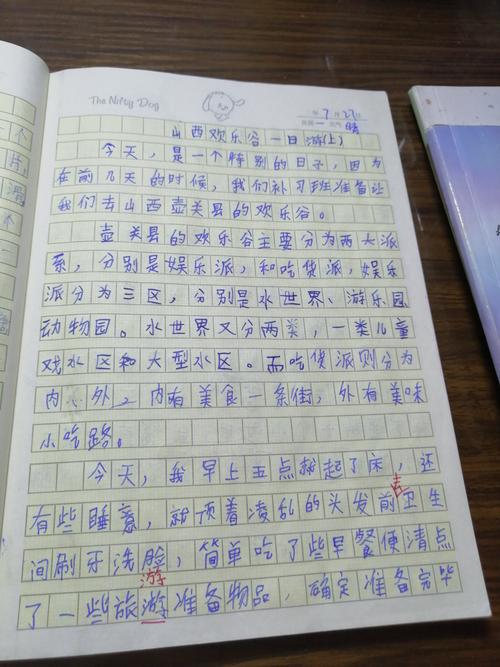 The Nifty Dog
年 7 月 27 日
星期 一 天气 晴
山西欢乐谷一日游(上)
今天，是一个特别的日子，因为
在前几天的时候，我们补习班准备让
我们去山西壶关县的欢乐谷。
壶关县的欢乐谷主要分为两大派
系，分别是娱乐派，和吃货派，娱乐
派分为三区，分别是水世界、游乐园
动物园。水世界又分两类，一类儿童
戏水区和大型水区。而吃货派则分为
内、外，内有美食一条街，外有美味
小吃路。
今天，我早上五点就起了床，还
去
有些睡意，就顶着凌乱的头发前卫生
间刷牙洗脸，简单吃了些早餐便清点
游
了一些旅游准备物品，确定准备完毕